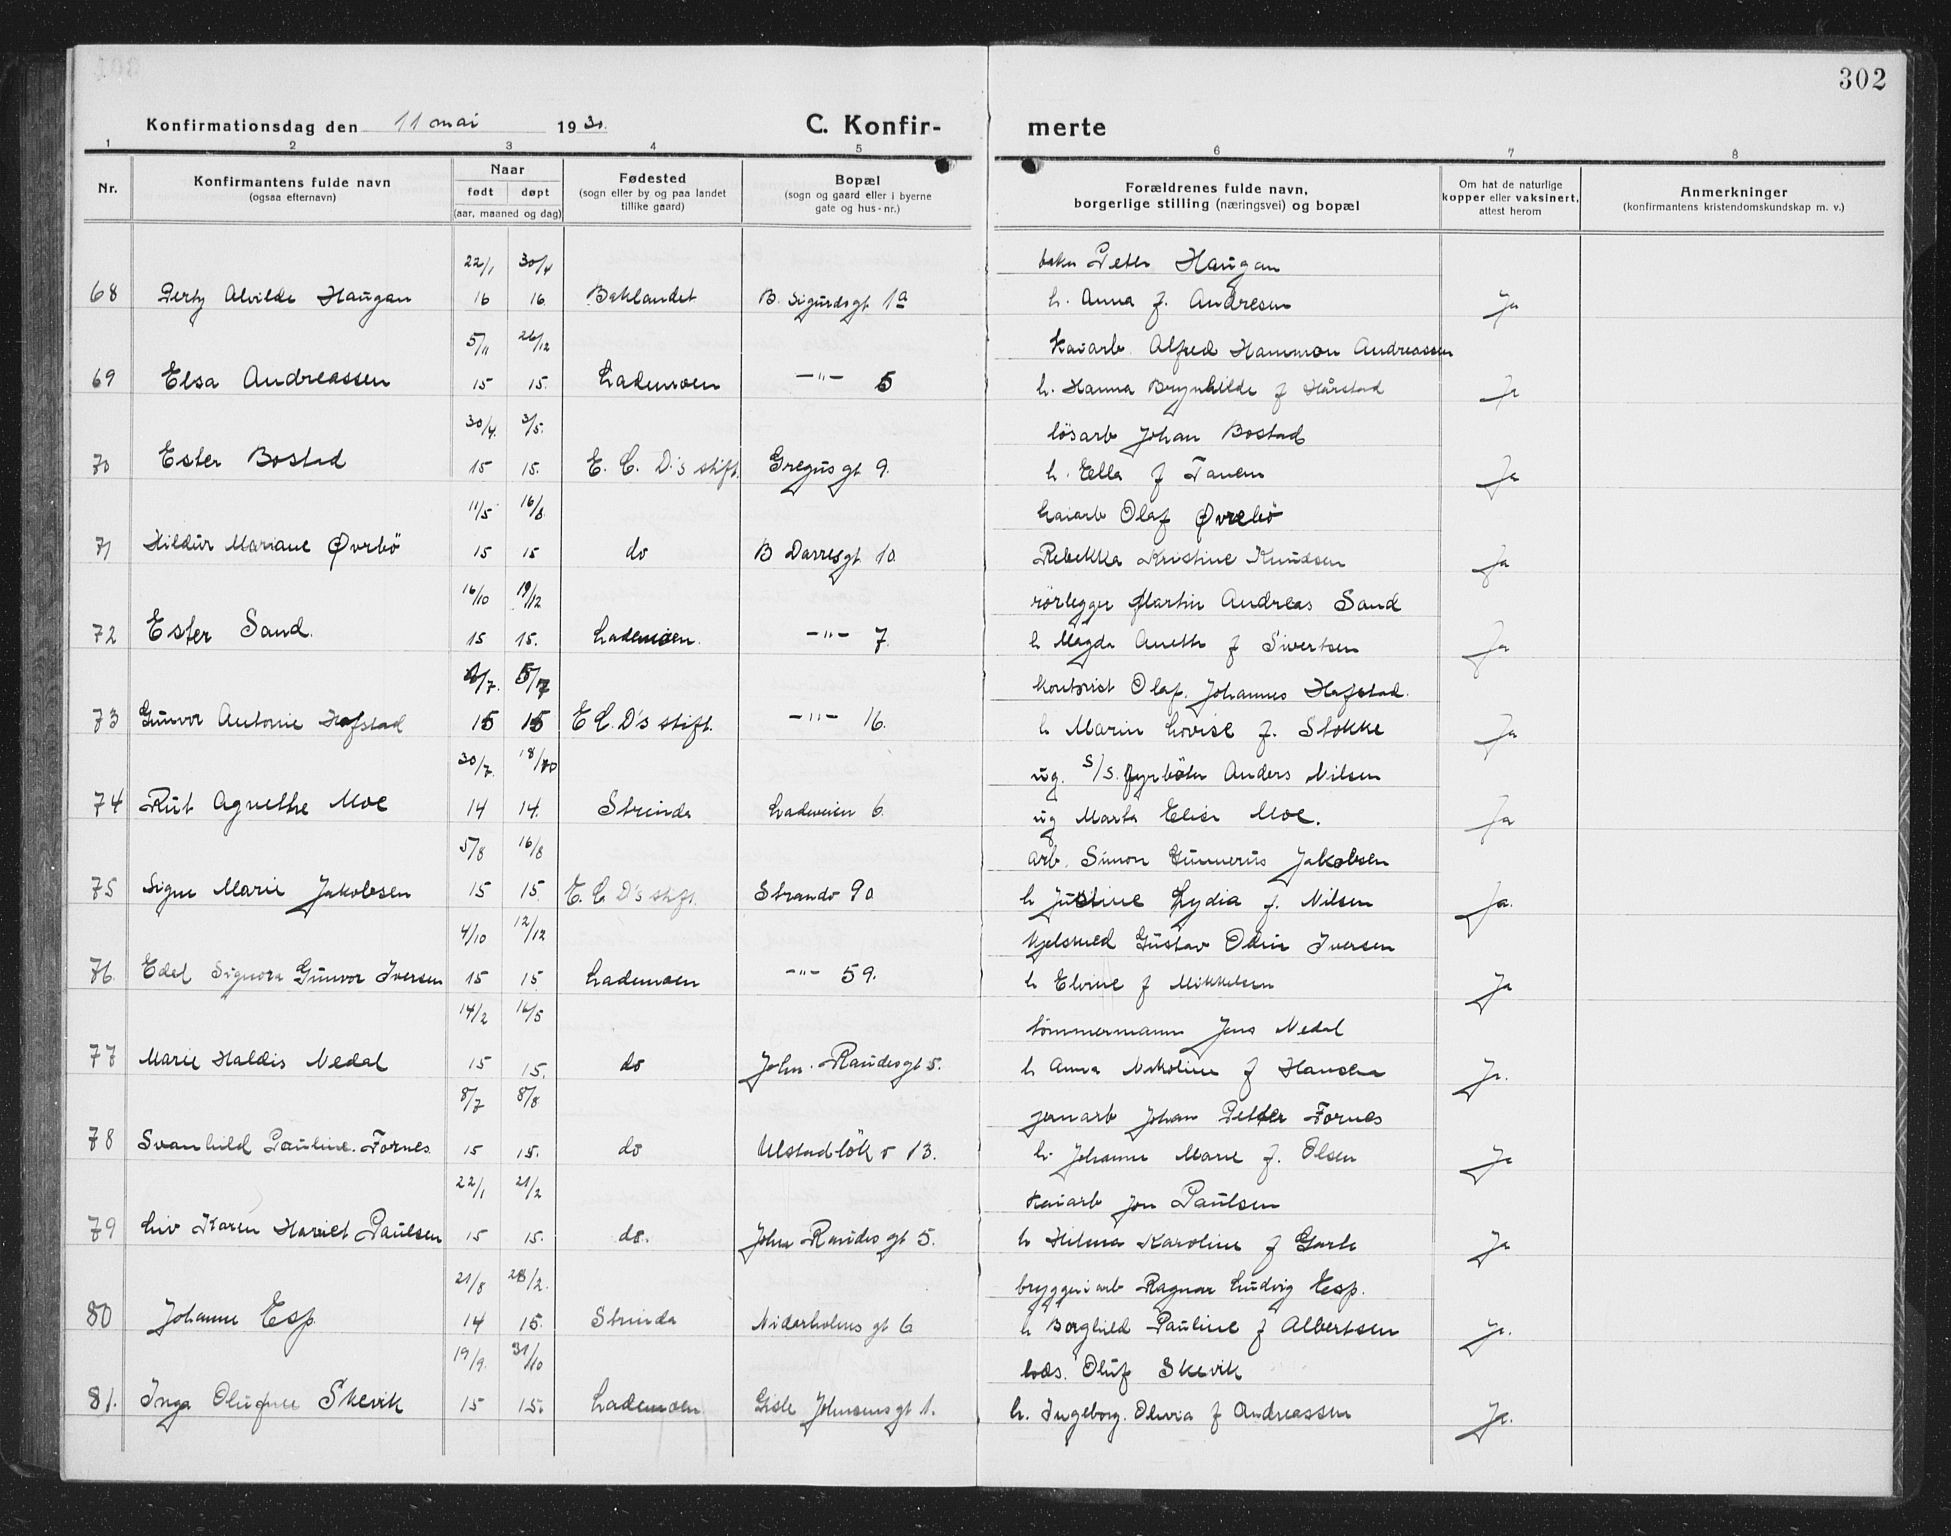 302
Konfirmationsdag den 11 mai 1930. C. Konfir- merte
1 2 3 4 5 6 7 8
Nr.
Konfirmantens fulde navn
(ogsaa efternavn)
Naar
født døpt
(aar, maaned og dag)
Fødested
(sogn eller by og paa landet
tillike gaard)
Bopæl
(sogn og gaard eller i byerne
gate og hus-nr.)
Forældrenes fulde navn,
borgerlige stilling (næringsvei) og bopæl
Om hat de naturlige
kopper eller vaksinert,
attest herom
Anmerkninger
(konfirmantens kristendomskundskap m. v.)
22/1 30/4 Peter Haugan
68 Alvilde Haugan 16 16 Baklandet B. Sigurdsgt 1a h. Anna f. Andresen Ja
5/11 26/12 kaiarb. Alfred Hammon Andreassen
69 Elsa Andreassen 15 15. Lademoen —"— 5 h. Hanna Brynhilde f Hårstad Ja
30/4. 3/5. løsarb Johan Bostad
70 Ester Bostad 15 15. E. C. D.'s stift. Gregusgt 9. h. Ella f Tanem Ja
11/5 16/8 kaiarb Olaf Øvrebö
71 Hildur Mariane Øvrbö 15 15 do B Darresgt. 10. Rebekka Kristine Knudsen Ja
16/10 19/12 rörlegger Martin Andreas Sand
72 Ester Sand. 15 15. Lademoen. —"— 7. h Magda Anette f Sivertsen Ja
4/7. 5/7 kontorist Olaf. Johannes Hofstad.
73 Gunvor Antonie Hofstad 15 15 E C. D's stift. —"— 16. h Marin Lovise f. Stokke Ja
30/7. 18/10 ug. S/S. fyrböter Anders Nilsen
74 Rut Agnethe Moe 14 14. Strinda Ladeveien 6. ug Marta Elise Moe. Ja
5/8 16/8 arb. Simon Gunnerus Jakobsen
75 Signe Marie Jakobsen 15 15. E. C D's stift. Strandv 90 h Justine Lydia f. Nilsen Ja.
4/10 12/12 kjelsmed Gustav Odin Iversen
76. Edel Signora Gunvor Iversen 15 15 Lademoen —"— 59. h Elvine f Mikkelsen Ja
14/2 16/5 tömmermann Jens Nedal
77 Marie Haldis Nedal 15 15. do John. Raudesgt 5. h Anna Nikoline f Hansen Ja.
8/7 8/8 jernarb Johan Petter Fornes
78 Svanhild Pauline. Fornes. 15 15. do Ulstadlök v 13. h. Johanne Marie f. Olsen Ja
22/1 21/2 kaiarb Jon Paulsen
79 Liv Karen Harriet Paulsen 15 15. do. John Raudes gt 5. h Hilma Karoline f Garli Ja
21/8 28/2. bryggeriarb Ragnar Ludvig Esp.
80 Johanne Esp 14 15. Strinda Nidarholms gt 6 h Borghild Pauline f Albertsen Ja.
19/9. 31/10 lods. Oluf Skevik
81. Inga Olufine Skevik 15 15. Lademoen Gisle Johnsonsgt 1. h. Ingeborg. Olivia f Andreassen Ja.